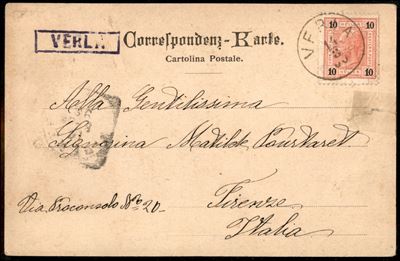 VERLA
Correspondenz-Karte.
Cartolina Postale.
10 10
VERLA
10 10
Alla Gentilissima
Signorina Matilde Pourtaret
Via Proconsolo No 20.
Firenze
Italia